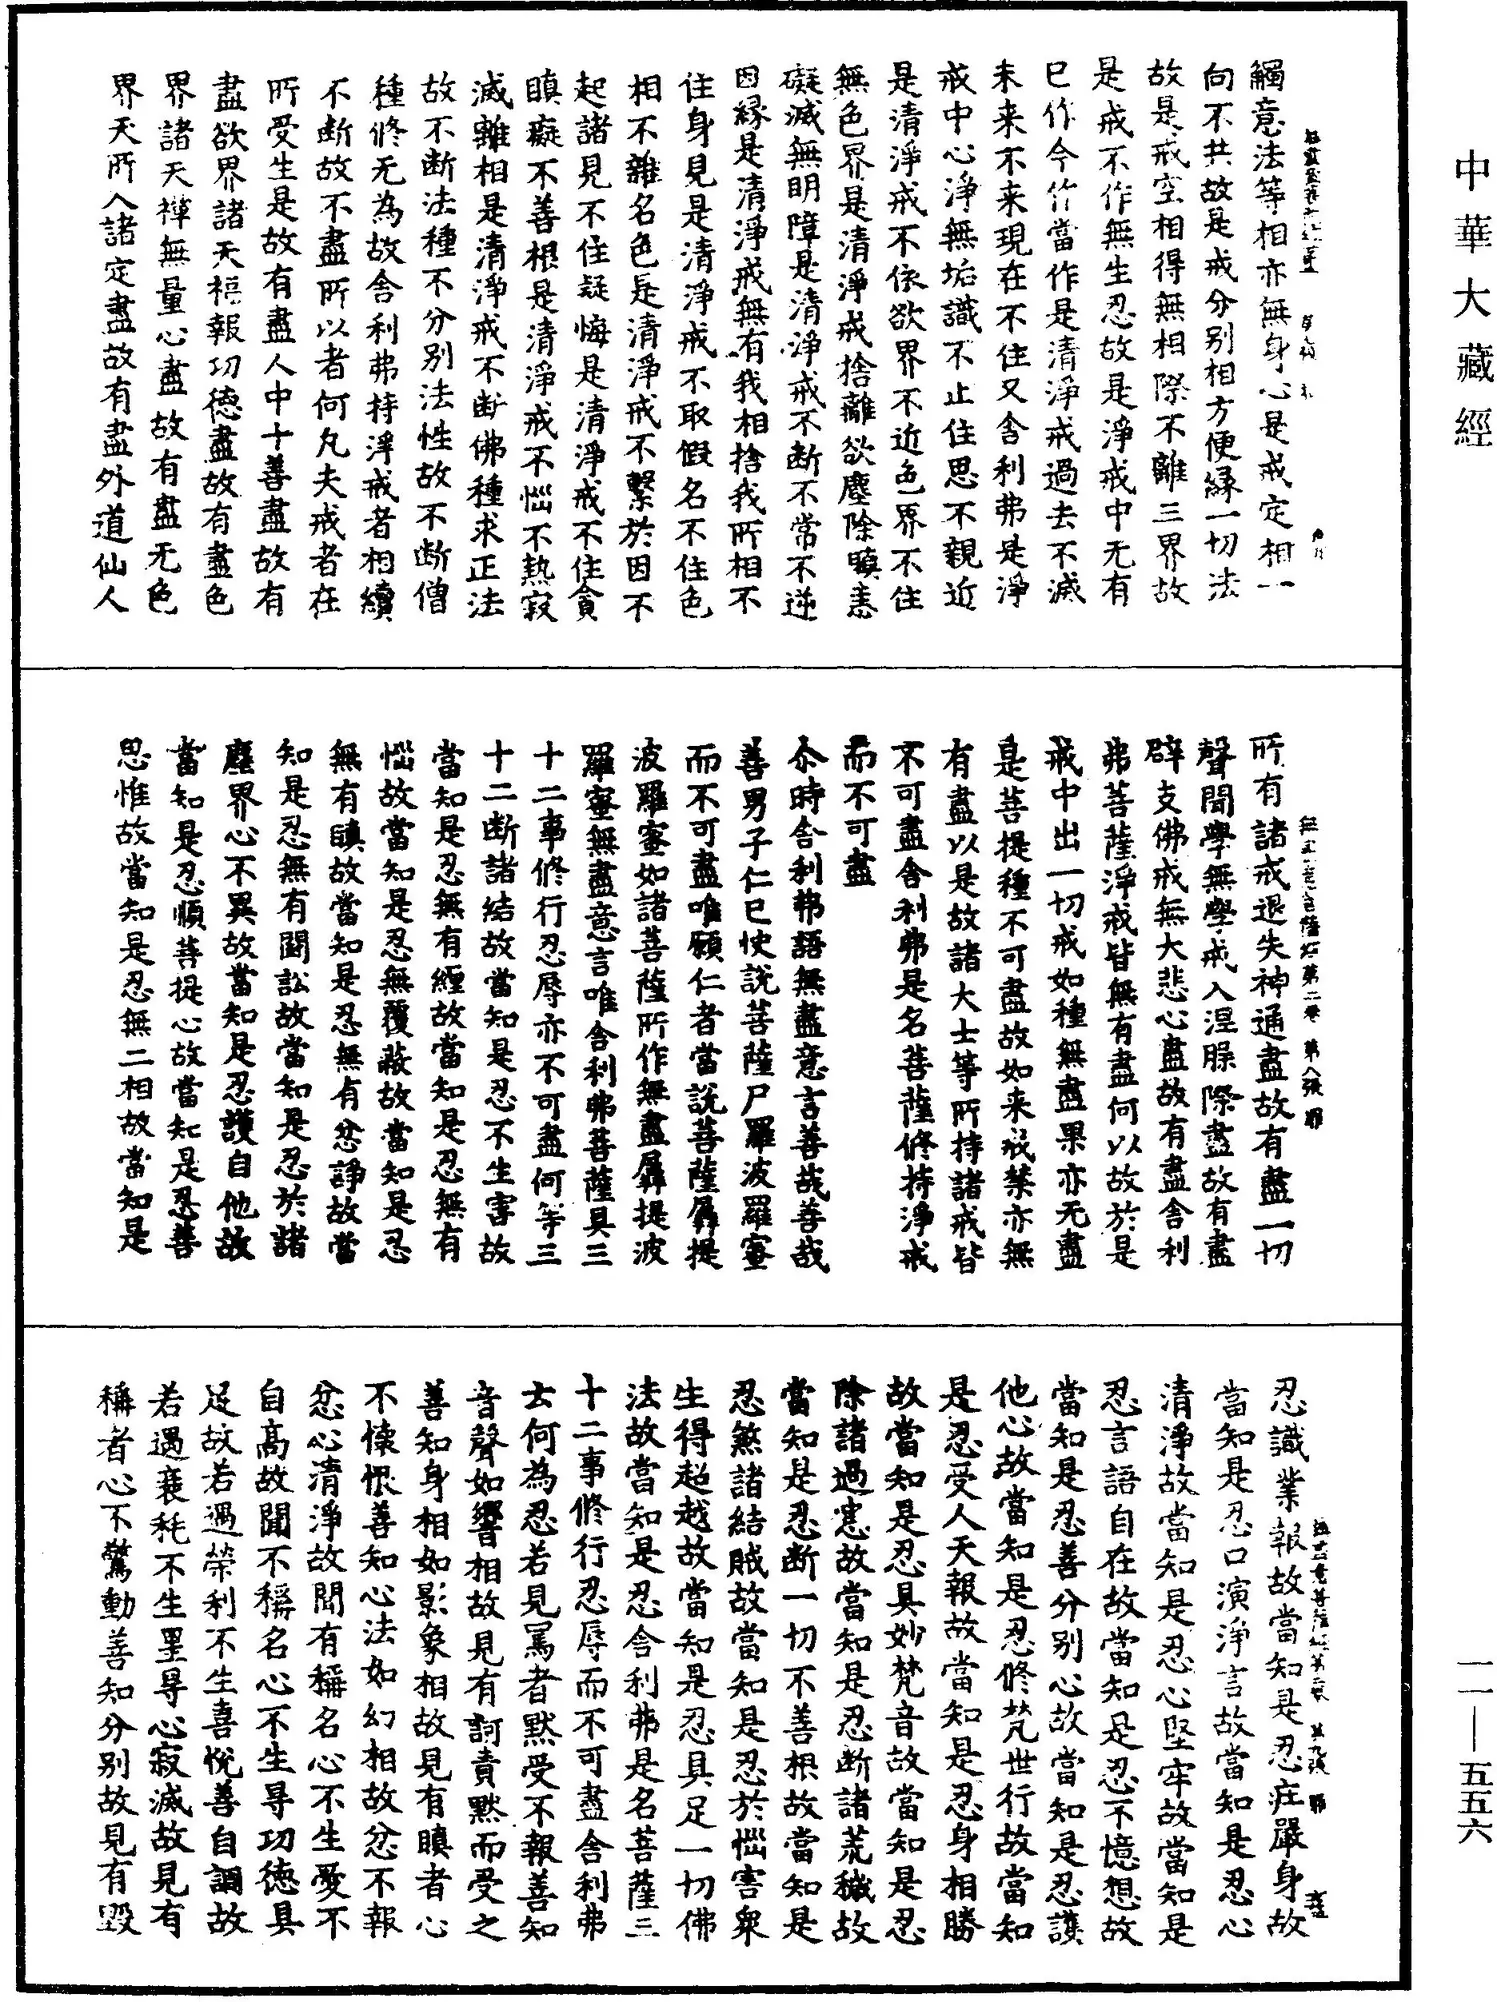 中華大藏經
觸意法等相亦無身心是戒定相一
向不共故是戒分别相方便緣一切法
故是戒空相得無相際不離三界故
是戒不作無生忍故是淨戒中无有
已作今作當作是清淨戒過去不滅
未来不来現在不住又舍利弗是淨
戒中心淨無垢識不止住思不親近
是清淨戒不依欲界不近色界不住
無色界是清淨戒捨離欲塵除瞋恚
礙滅無明障是清淨戒不断不常不逆
因縁是清淨戒無有我相捨我所相不
住身見是清淨戒不取假名不住色
相不雜名色是清淨戒不繫於因不
起諸見不住疑悔是清淨戒不住貪
瞋癡不善根是清淨戒不惱不熱寂
滅離相是清淨戒不断佛種求正法
故不断法種不分别法性故不断僧
種修无為故舍利弗持淨戒者相續
不断故不盡所以者何凡夫戒者在
所受生是故有盡人中十善盡故有
盡欲界諸天福報功德盡故有盡色
界諸天禪無量心盡故有盡无色
界天所入諸定盡故有盡外道仙人
所有諸戒退失神通盡故有盡一切
聲聞學無學戒入涅脲際盡故有盡
辟支佛戒無大悲心盡故有盡舍利
弗菩薩淨戒皆無有盡何以故於是
戒中出一切戒如種無盡果亦无盡
是菩提種不可盡故如来戒禁亦無
有盡以是故諸大士等所持諸戒皆
不可盡舍利弗是名菩薩修持淨戒
而不可盡
尒時舍利弗語無盡意言善哉善哉
善男子仁已快說菩薩尸羅波羅蜜
而不可盡唯願仁者當說菩薩羼提
波羅蜜如諸菩薩所作無盡羼提波
羅蜜無盡意言唯舍利弗菩薩具三
十二事修行忍辱亦不可盡何等三
十二断諸結故當知是忍不生害故
當知是忍無有纏故當知是忍無有
惱故當知是忍無覆蔽故當知是忍
無有瞋故當知是忍無有忿諍故當
知是忍無有鬭訟故當知是忍於諸
塵界心不異故當知是忍護自他故
當知是忍順菩提心故當知是忍善
思惟故當知是忍無二相故當知是
忍識業報故當知是忍莊嚴身故
當知是忍口演淨言故當知是忍心
清淨故當知是忍心堅牢故當知是
忍言語自在故當知是忍不憶想故
當知是忍善分别心故當知是忍護
他心故當知是忍修梵世行故當知
是忍受人天報故當知是忍身相勝
故當知是忍具妙梵音故當知是忍
除諸過患故當知是忍断諸荒穢故
當知是忍断一切不善根故當知是
忍煞諸結賊故當知是忍於惱害衆
生得超越故當知是忍具足一切佛
法故當知是忍舍利弗是名菩薩三
十二事修行忍辱而不可盡舍利弗
云何為忍若見罵者默受不報善知
音聲如響相故見有訶責默而受之
善知身相如影象相故見有瞋者心
不懷恨善知心法如幻相故忿不報
忿心清淨故聞有稱名心不生愛不
自高故聞不稱名心不生㝵功德具
足故若遇榮利不生喜悅善自調故
若遇衰秏不生罣㝵心寂滅故見有
稱者心不驚動善知分别故見有毀
一一—五五六